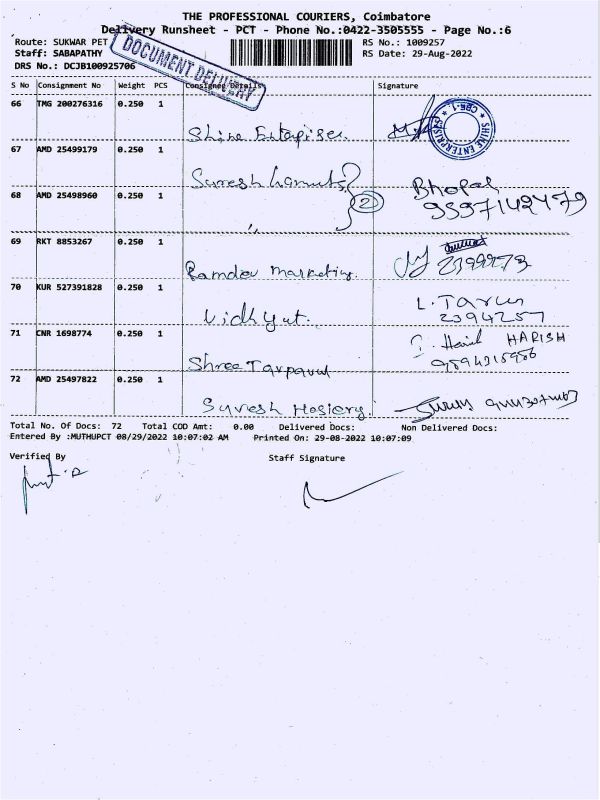 THE PROFESSIONAL COURIERS, Coimbatore
Delivery Runsheet - PCT - Phone No.:0422-3505555 - Page No.:6
Route: SUKWAR PET
RS No.: 1009257
Staff: SABAPATHY
RS Date: 29-Aug-2022
DRS No.: DCJB100925706
DOCUMENT DELIVERY
S No Consignment No Weight PCS Consignee Details Signature
66 TMG 200276316 0.250 1
Shine Entepises.
SHINE ENTERPRISE
CBE-1.
67 AMD 25499179 0.250 1
Suresh
68 AMD 25498960 0.250 1
2
Bhopal
69 RKT 8853267 0.250 1
Ramdev Marketing.
2399273
70 KUR 527391828 0.250 1
Vidhyut.
L. Tarun
2394257
71 CNR 1698774 0.250 1
Shree Tarpaval
HARISH
72 AMD 25497822 0.250 1
Suresh Hosiery.
Total No. Of Docs: 72 Total COD Amt: 0.00 Delivered Docs: Non Delivered Docs:
Entered By :MUTHUPCT 08/29/2022 10:07:02 AM Printed On: 29-08-2022 10:07:09
Verified By Staff Signature